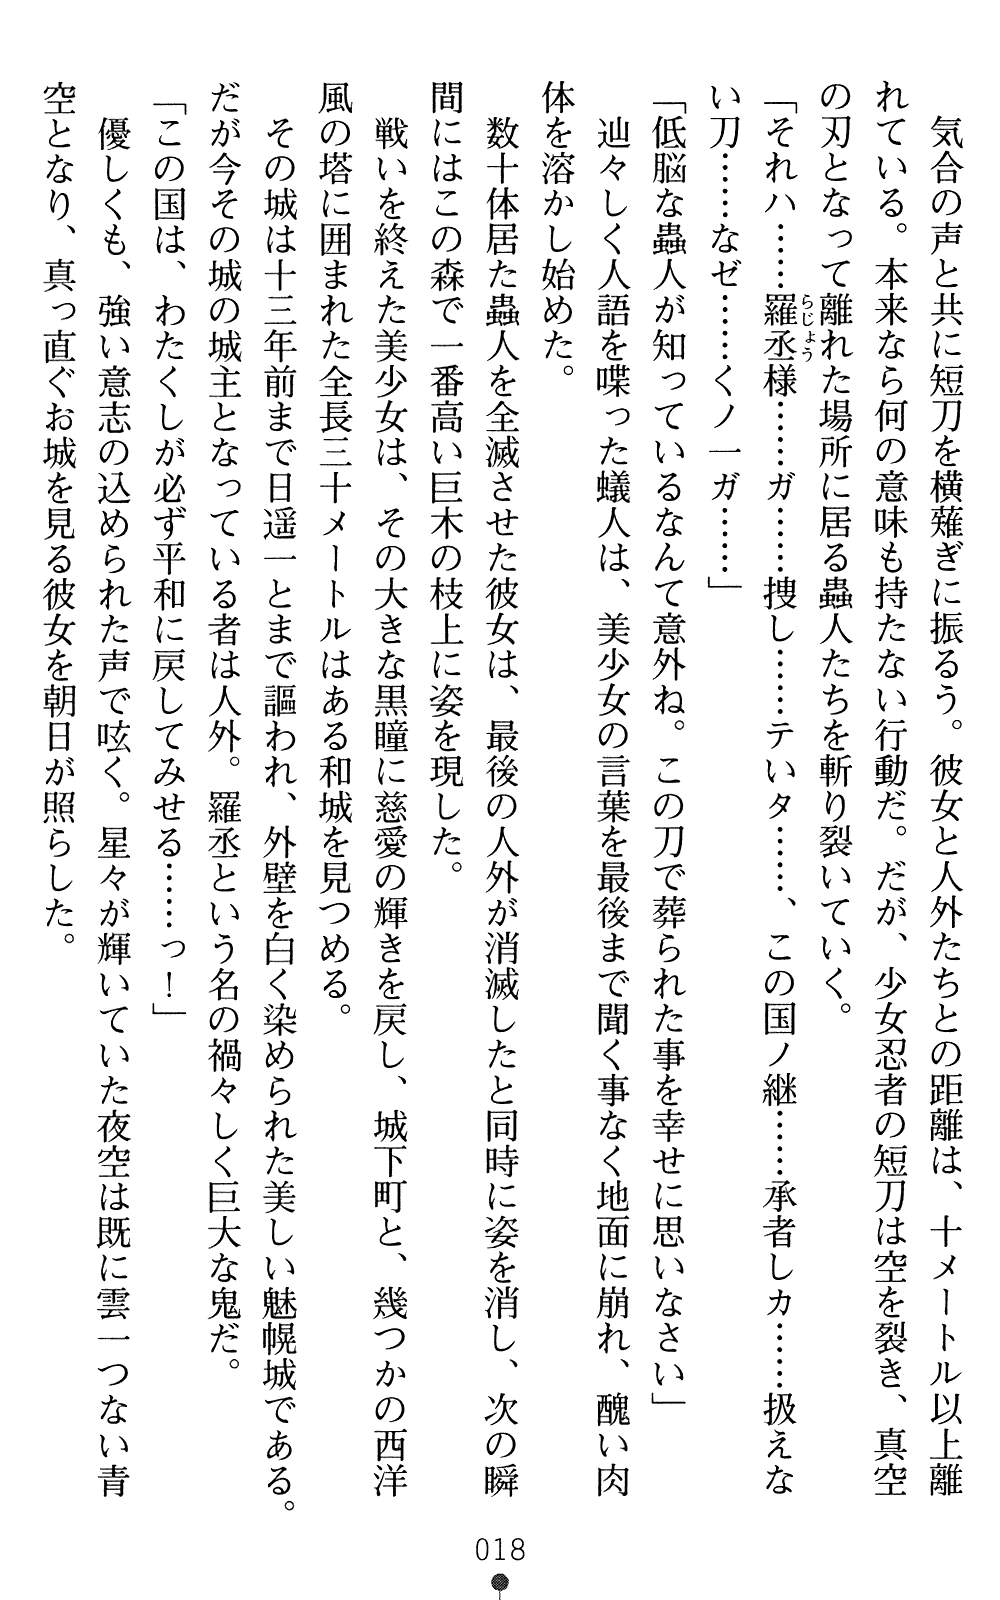 気合の声と共に短刀を横薙ぎに振るう。彼女と人外たちとの距離は、十メートル以上離
れている。本来なら何の意味も持たない行動だ。だが、少女忍者の短刀は空を裂き、真空
の刃となって離れた場所に居る蟲人たちを斬り裂いていく。
「それハ……羅丞様……ガ……捜し……テいタ……、この国ノ継……承者しカ……扱えな
らじょう
い刀……なゼ……くノ一ガ……」
「低脳な蟲人が知っているなんて意外ね。この刀で葬られた事を幸せに思いなさい」
辿々しく人語を喋った蟻人は、美少女の言葉を最後まで聞く事なく地面に崩れ、醜い肉
体を溶かし始めた。
数十体居た蟲人を全滅させた彼女は、最後の人外が消滅したと同時に姿を消し、次の瞬
間にはこの森で一番高い巨木の枝上に姿を現した。
戦いを終えた美少女は、その大きな黒瞳に慈愛の輝きを戻し、城下町と、幾つかの西洋
風の塔に囲まれた全長三十メートルはある和城を見つめる。
その城は十三年前まで日遥一とまで謳われ、外壁を白く染められた美しい魅幌城である。
だが今その城の城主となっている者は人外。羅丞という名の禍々しく巨大な鬼だ。
「この国は、わたくしが必ず平和に戻してみせる……っ！」
優しくも、強い意志の込められた声で呟く。星々が輝いていた夜空は既に雲一つない青
空となり、真っ直ぐお城を見る彼女を朝日が照らした。
018